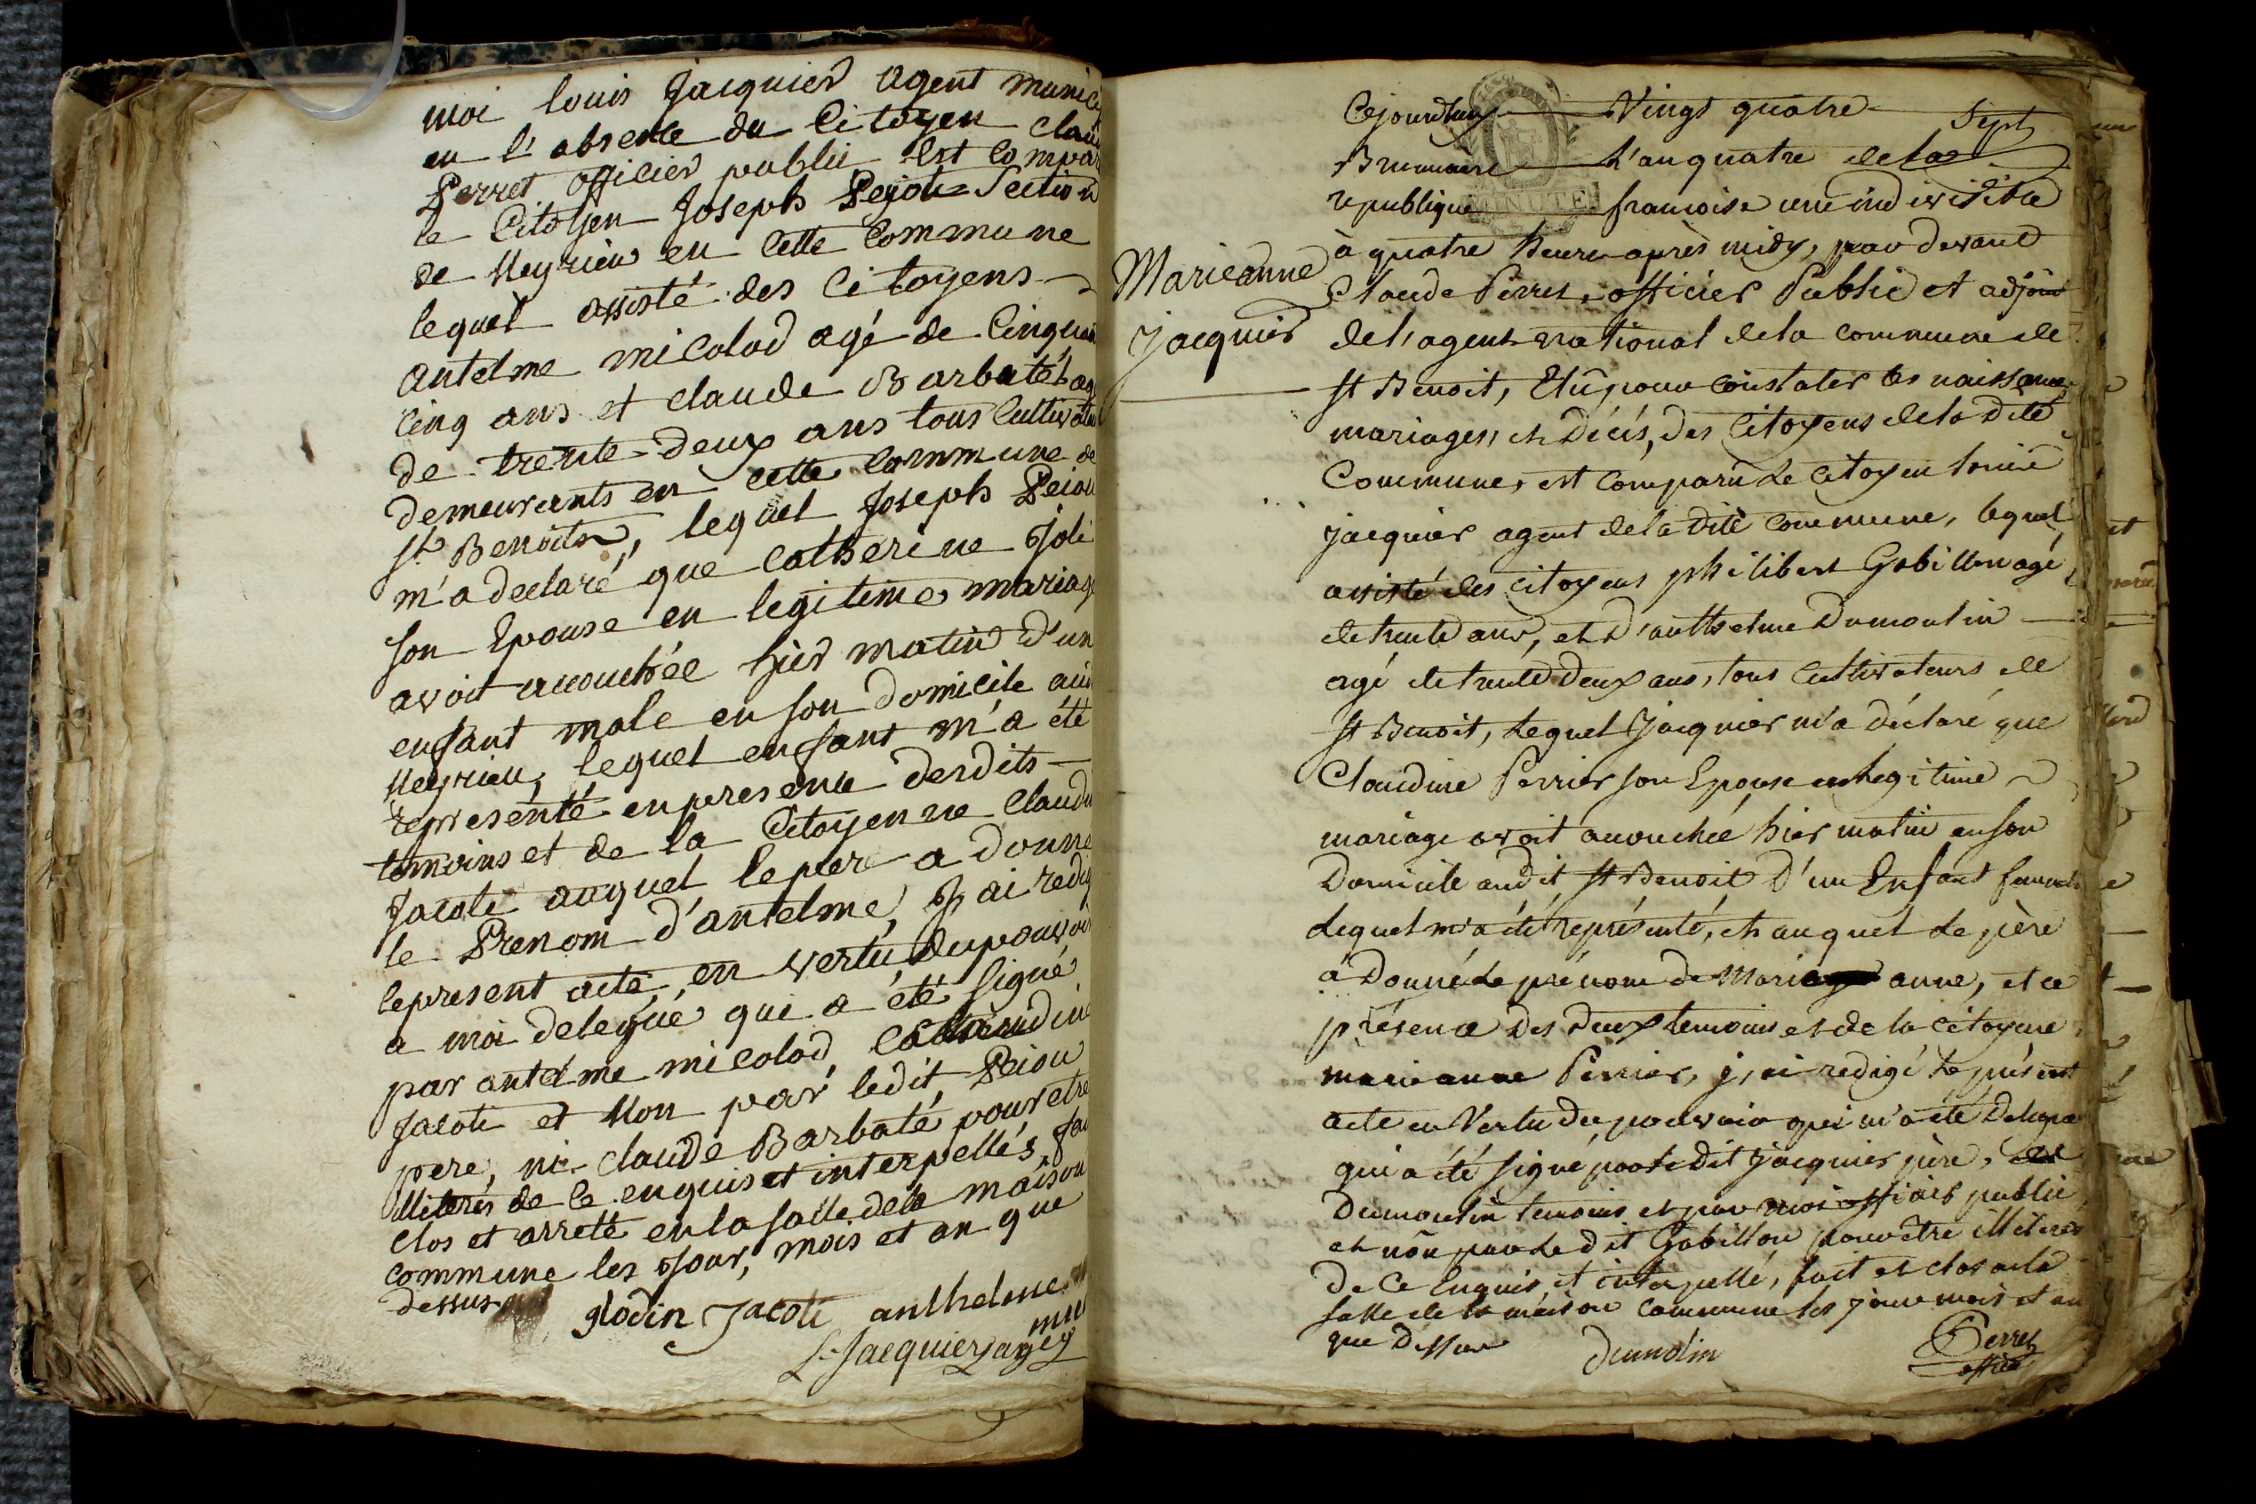 moi louis Jacquier agent munici
en l'absence du Citoyen Clau
Perret officier public est compar
le Citoyen Joseph Pejot Section
de Meyrieu en cette Commune
lequel assisté des Citoyens
antelme micolod agé de Cinquan
cinq ans et claude Barbaté ag
de trente deux ans tous Cultivat
demeurants en cette commune de
St. Benoit, lequel Joseph Peiou
m'a declaré que Catherine Joli
son Epouse en legitime mariag
avoit accouchée hier matin d'un
enfant male en son domicile au
Meyrieu, lequel enfant m'a été
représenté en presence desdits
temoins et de la Citoyenne Claudi
Jacoti auquel le pere a donné
le Prenom d'antelme, J'ai redig
le present acte en vertu du pouvoir
a moi delegué qui a été signé
par antelme micolod, Claudine
Jacoti et Non par ledit Peiou
pere, ni claude Barbaté pour etre
illiterés de ce enquis et interpellés, fai
clos et arreté en la salle de la maison
commune les Jour, mois et an que
dessus
glodin Jacoti anthelme
mic
L. Jacquier agey
Cejourdhuy Vingt quatre
Sept
Brumaire L'an quatre de la
republique francoise une indivisible
MINUTE
à quatre heure après midy, par devant
Marieanne
Claude Perret, officier Public et adjoint
Jacquier
de l'agent national de la commune de
st Benoit, Elû pour constater les naissance
mariages, et Décés, des Citoyens de la Dite
Commune, est comparu Le citoyen Louis
jacquier agent de la dite commune, lequel
assisté des citoyens philibert Gabillon agé
de trente ans, et d'anthelme Dumoulin
agé de trente Deux ans, tous Cultivateurs de
st Benoit, lequel Jacquier m'a déclaré que
Claudine Perrier son Epouse en Legitime
mariage avoit accouchée hier matin en son
Domicile audit st Benoit D'un Enfant femelle
Lequel m'a été représenté, et auquel Le père
a Donné Le prénom de Marie anne, et ce
présence des Deux temoins et de la citoyene
marieanne Perrier, j'ai redigé Le présent
acte en Vertu du pouvoir qui m'a été Delegué
qui a été signé par Le Dit Jacquier père,
Dumoulin temoins et par moi officier public
et non par Le Dit Gabillon pour être illiteré
De Ce Enquis et interpellé, fait et clos a la
salle de la maison commune les jour mois et an
que Dessus
Dumolin
Perret
officier